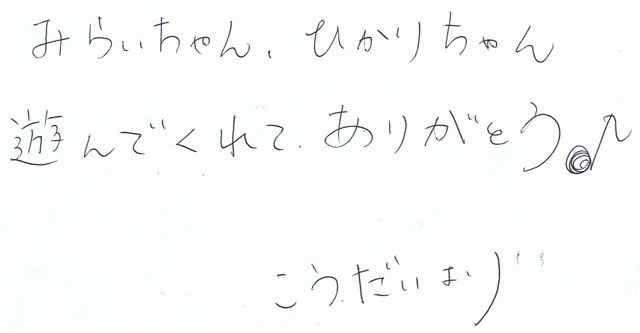 みらいちゃん、ひかりちゃん
遊んでくれて、ありがとう。♪
こうだいより